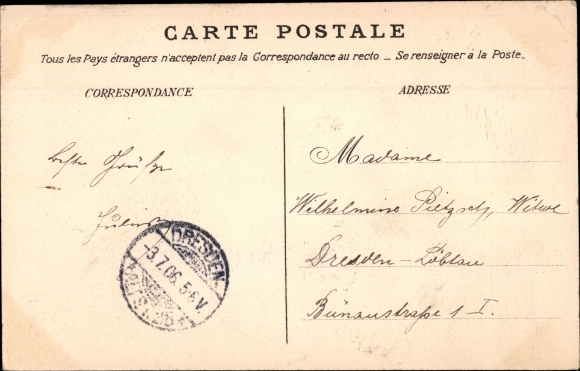 CARTE POSTALE
Tous les Pays étrangers n'acceptent pas la Correspondance au recto. _ Se renseigner à la Poste.
CORRESPONDANCE
ADRESSE
beste Grüße
Julius
Madame
Wilhelmine Pietzsch, Witwe
Dresden-Löbtau
Bünaustraße 1 I.
DRESDEN-
-3.7.06. 5-6 V.
ALTST.